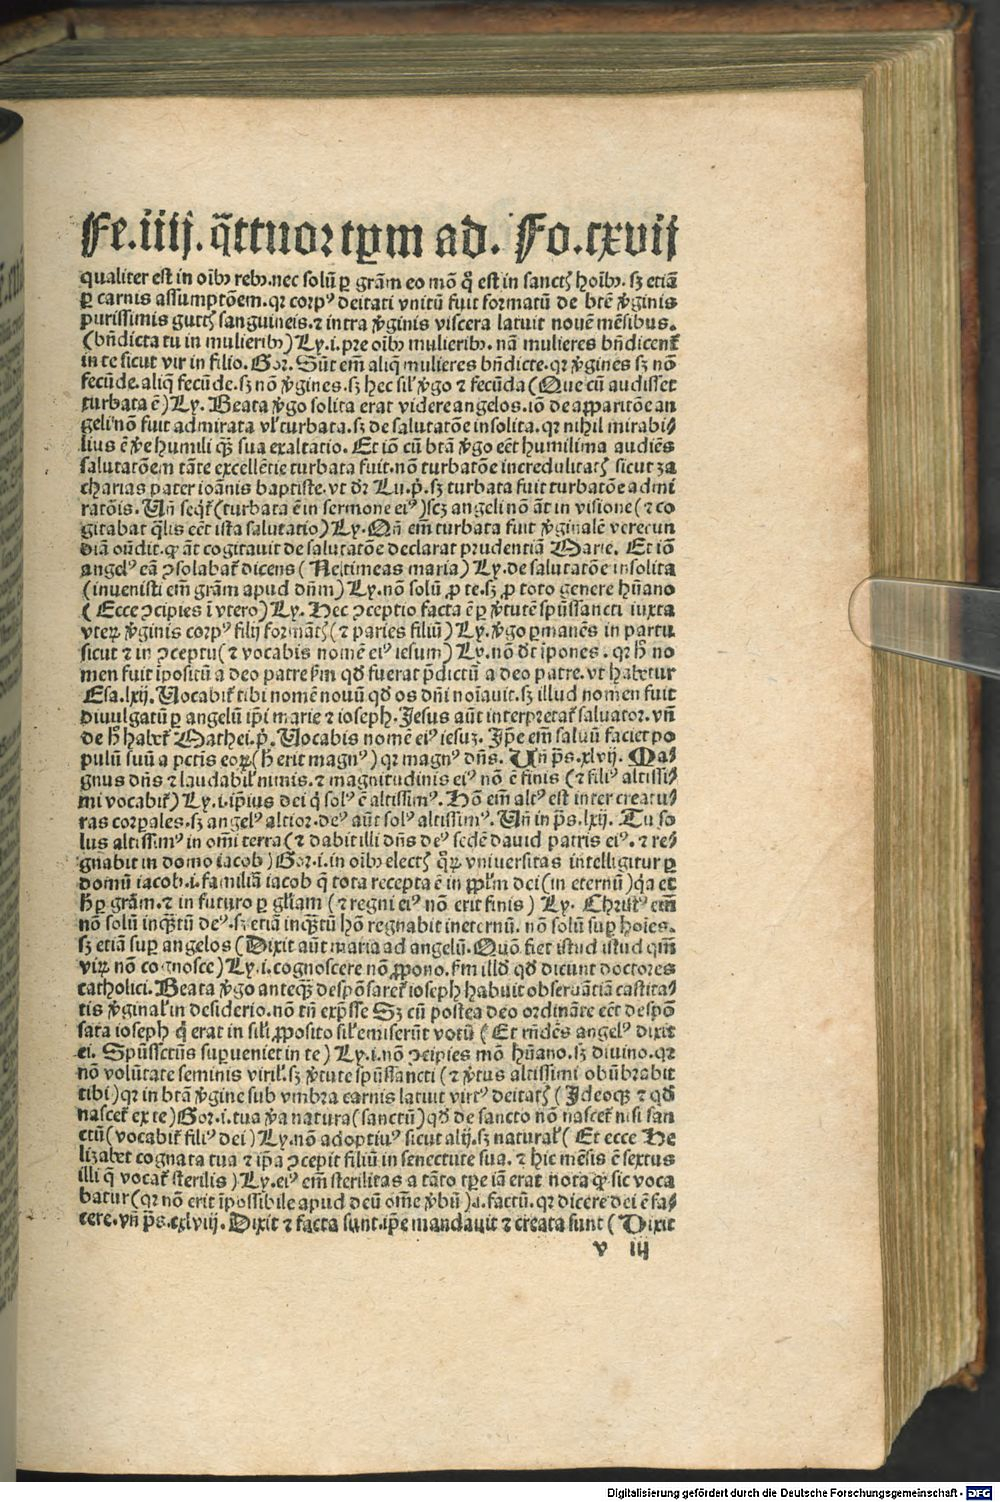 Fe.iiij. q̄ttuor tꝑm ad. Fo.cxvij
qualiter est in oĩbꝰ rebꝰ. nec solũ ꝑ grãm eo mõ q̃ est in sanctꝭ hoĩbꝰ. sꝫ etiã
ꝑ carnis assumptõem. qꝛ corpꝰ deitati vnitũ fuit formatũ de btẽ ỹginis
purissimis guttꝭ sanguineis. ⁊ intra ỹginis viscera latuit nouẽ mẽsibus.
(bñdicta tu in mulieribꝰ) Ly. i. pre oĩbꝰ mulieribꝰ. nã mulieres bñdicent᷑
in te sicut vir in filio. Gor. Sũt em̃ aliq̃ mulieres bñdicte. qꝛ ỹgines sꝫ nõ
fecũde. aliq̃ fecũde. sꝫ nõ ỹgines. sꝫ hec sil̛ ỹgo ⁊ fecũda (Que cũ audisset
turbata ẽ) Ly. Beata ỹgo solita erat videre angelos. iõ de apparitõe an
geli nõ fuit admirata vl̛ turbata. sꝫ de salutatõe insolita. qꝛ nihil mirabi⸗
lius ẽ ỹe humili q̃ꝫ sua exaltatio. Et iõ cũ btã ỹgo eẽt humilima audiẽs
salutatõem tãte excellẽtie turbata fuit. nõ turbatõe incredulitatꝭ sicut za
charias pater ioãnis baptiste. vt dꝛ Lu. p̃. sꝫ turbata fuit turbatõe admi
ratõis. Uñ seqt᷑ (turbata ẽ in sermone eiꝰ) scꝫ angeli nõ ãt in visione (⁊ co
gitabat q̃lis eẽt ista salutatio) Ly. Qñ em̃ turbata fuit ỹginalẽ verecun
diã oñdit. ꝙ ãt cogitauit de salutatõe declarat prudentiã Marie. Et iõ
angelꝰ eã ꝯsolabat᷑ dicens (Ne timeas maria) Ly. de salutatõe insolita
(inuenisti em̃ grãm apud dñm) Ly. nõ solũ ꝓ te. sꝫ ꝓ toto genere hũano
(Ecce ꝯcipies ĩ vtero) Ly. Hec ꝯceptio facta ẽ ꝑ ỹtutẽ spũssancti iuxta
vterꝝ ỹginis corpꝰ filij formãtꝭ (⁊ paries filiũ) Ly. ỹgo ꝑmanẽs in partu
sicut ⁊ in ꝯceptu (⁊ vocabis nomẽ eiꝰ iesum) Ly. nõ dt̃ ĩpones. qꝛ h̃ no
men fuit ĩpositũ a deo patre k̃m qd̛ fuerat p̃dictũ a deo patre. vt habetur
Esa. lxij. Uocabit᷑ tibi nomẽ nouũ qd̛ os dñi noĩauit. sꝫ illud nomen fuit
diuulgatũ ꝑ angelũ ip̃i marie ⁊ ioseph. Jesus aũt interpretat᷑ saluator. vñ
de h̃ habet᷑ Mathei. p̃. Uocabis nomẽ eiꝰ iesuz. Ip̃e em̃ saluũ faciet po
pulũ suũ a pctis eoꝝ (h̃ erit magnꝰ) qꝛ magnꝰ dñs. Uñ p̃s. xlvij. Ma⸗
gnus dñs ⁊ laudabil̛ nimis. ⁊ magnitudinis eiꝰ nõ ẽ finis (⁊ filiꝰ altissi⸗
mi vocabit᷑) Ly. i. ip̃ius dei q̃ solꝰ ẽ altissimꝰ. Hõ em̃ altꝰ est inter creatu⸗
ras corꝑales. sꝫ angelꝰ altior. deꝰ aũt solꝰ altissimꝰ. Uñ in p̃s. lxij. Tu so
lus altissimꝰ in om̃i terra (⁊ dabit illi dñs deꝰ sedẽ dauid patris eiꝰ. ⁊ re⸗
gnabit in domo iacob) Gor. i. in oĩbꝰ electꝭ q̃ꝝ vniuersitas intelligitur ꝑ
domũ iacob. i. familiã iacob q̃ tota recepta ẽ in ppl̃m dei (in eternũ) q̃a et
h̃ ꝑ grãm. ⁊ in futuro ꝑ gl̃iam (⁊ regni eiꝰ nõ erit finis) Ly. Christꝰ em̃
nõ solũ inq̃ꝫtũ deꝰ. sꝫ etiã inq̃ꝫtũ hõ regnabit in eternũ. nõ solũ suꝑ hoĩes.
sꝫ etiã suꝑ angelos (Dixit aũt maria ad angelũ. Quõ fiet istud istud qm̃
viꝝ nõ cognosco) Ly. i. cognoscere nõ ꝓpono. k̃m illd̛ qd̛ dicunt doctores
catholici. Beata ỹgo anteq̃ꝫ despõsaret᷑ ioseph habuit obseruãtiã castita⸗
tis ỹginal̛ in desiderio. nõ tñ exp̃sse Sꝫ cũ postea deo ordinãte eẽt despõ
sata ioseph q̃ erat in sil̛i ꝓposito sil̛ emiserũt votũ (Et rñdẽs angelꝰ dixit
ei. Spũssctũs suꝑueniet in te) Ly. i. nõ ꝯcipies mõ hũano. sꝫ diuino. qꝛ
nõ volũtate seminis viril̛. sꝫ ỹtute spũssancti (⁊ ỹtus altissimi obũbrabit
tibi) qꝛ in btã ỹgine sub vmbra carnis latuit virtꝰ deitatꝭ (Ideoqꝫ ⁊ qd̛
nascet᷑ ex te) Gor. i. tua ỹa natura (sanctũ) qd̛ de sancto nõ nascet᷑ nisi san
ctũ (vocabit᷑ filiꝰ dei) Ly. nõ adoptiuꝰ sicut alij. sꝫ natural̛ (Et ecce He
lizabet cognata tua ⁊ ip̃a ꝯcepit filiũ in senectute sua. ⁊ hic mẽsis ẽ sextus
illi q̃ vocat᷑ sterilis) Ly. eiꝰ em̃ sterilitas a tãto tꝑe iã erat nota ꝙ sic voca
batur (qꝛ nõ erit ĩpossibile apud deũ om̃e ỹbũ) .i. factũ. qꝛ dicere dei ẽ fa⸗
cere. vñ p̃s. cxlviij. Dixit ⁊ facta sunt. ip̃e mandauit ⁊ creata sunt (Dixit
v iij
Digitalisierung gefördert durch die Deutsche Forschungsgemeinschaft - DFG